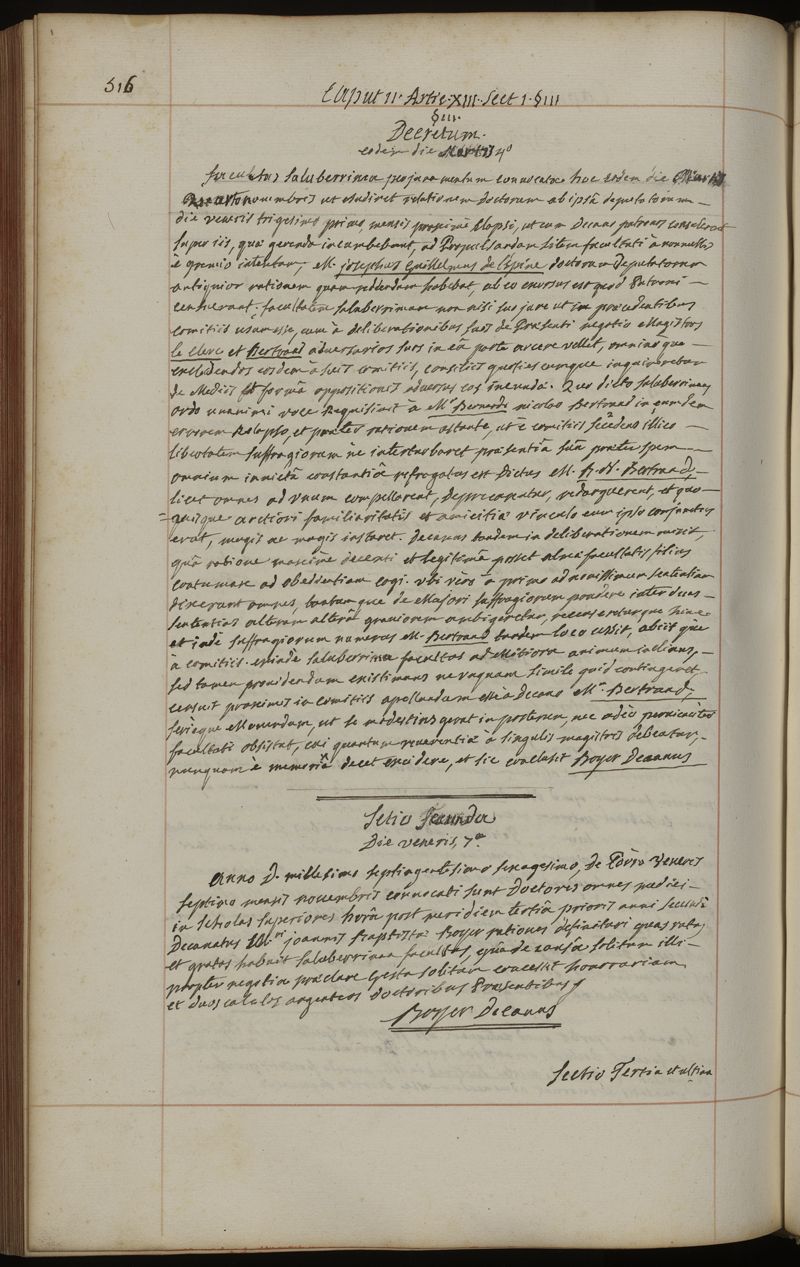 516
Caput 11. Artic. XIII. Sect 1. §III
§III.
Decretum.
eodem die Martis 4ª
facultas saluberrima per juramentum convocata hoc eodem die Martis
quarto novembris ut audiret relationem doctorum ab ipsâ deputatorum —
die veneris trigesimo primo, mensis proximè elapsi, ut cum Decano patronos consulerent
super iis, quæ gerenda incumbebant, ad Propulsandam litem facultati à nonnullis
è gremio intentam, M. josephus Guillelmus de l'Epine doctorum Deputatorum
antiquior rationem quam reddendam habebat, ab eo exorsus est quod Patroni —
censuerant, facultatem saluberrimam non nisi suo jure ut in præcedentibus
comitiis usuram esse, cum à deliberationibus suis de Præsenti negotio Magistros
le Clerc et Bertrand adversarios suos in eâ parte arcere vellet, omnino que —
excludendos eosdem à suis comitiis, consiliis quoties cumque inquireretur
de Mediis et formâ oppositionis adversus eos ineunda. Quo dicto saluberrimus
ordo unanimi voce Requisivit à Mº Bernardo nicolao Bertrand in eumdem
errorem Relapso, et præter rationem astante, ut è comitiis secedens illico —
libertatem suffragiorum ne interturbaret præsentiâ suâ præter spem —
omnium invictâ constantiâ refragatus est Dictus M. B. N. Bertrand, —
licet omnes ad unum compellarent, deprecarentur, redarguerent, et quo —
= quisque arctiori familiaritatis et amicitiæ vinculo cum ipso conjunctus
erat, magis ac magis instaret. Decanus tandem in deliberationem misit,
quâ ratione maxime decenti et legitimâ posset almæ facultatis filius
contumax ad obedientiam cogi. Ubi vero à primo ad novissimum sententiam
dixerant omnes, tantumque de Majori suffragiorum pondere inter duas —
sententias alteram alterâ graviorem ambigeretur, recenserenturque hinc
et inde suffragiorum numeros M. Bertrand tandem loco cessit, abiit que
à comitiis. exinde saluberrima facultas ad Mitiora animum inclinans, —
sed tamen providendum existimans ne unquam simile quid contingeret
censuit proximis in comitiis apellandum esse à decano Mm Bertrand,
serioque Monendum, ut se modestius gerat in posterum, nec adeò pervicaciter
facultati obsistat, cui quantum reverentiæ à singulis magistris debeatur, —
nunquam è memoriâ decet excidere, et sic conclusit Boyer Decanus
Sectio Secunda
Die veneris 7ª
Anno D. millesimo septingentesimo sexagesimo, die veneris
septimo mensis novembris convocati sunt Doctores omnes medici —
in scholas superiores horâ post meridiem tertiâ prioris anni secundi
Decanatus M. joannis Baptistæ Boyer rationes definitari quas ratas
et gratas habuit saluberrima facultas, quâ de causâ solitum illi —
propter negotia præclare Gesta solitum concessit honorarium
et duos calculos argenteos doctoribus Præsentibus
Boyer Decanus
Sectio Tertia et ultima